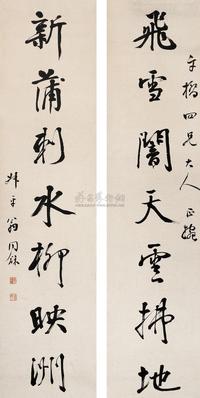 飛雪闇天雲拂地
平橋四兄大人正腕
新蒲刺水柳映洲
叔平翁同龢